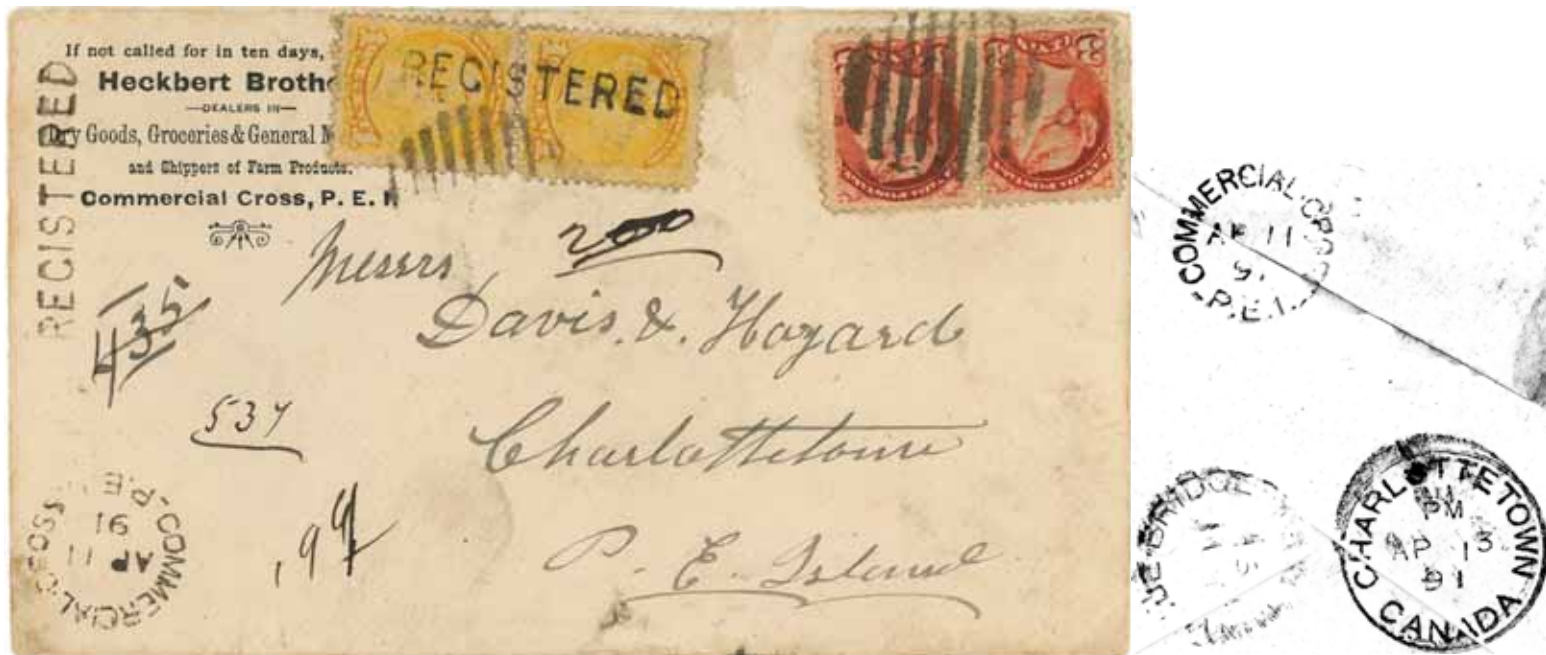 If not called for in ten days,
Heckbert Brothe
DEALERS IN
Dry Goods, Groceries & General M
and Shippers of Farm Products.
Commercial Cross, P. E. I.
REGISTERED
REGISTERED
200
Messrs
Davis & Hazard
Charlottetown
P. E. Island
435
537
COMMERCIAL-CROSS
P.E.
AP 11
91
COMMERCIAL-CROSS
AP 11
91
P.E.I.
UE BRIDGE
CHARLOTTETOWN
PM
AP 13
91
CANADA